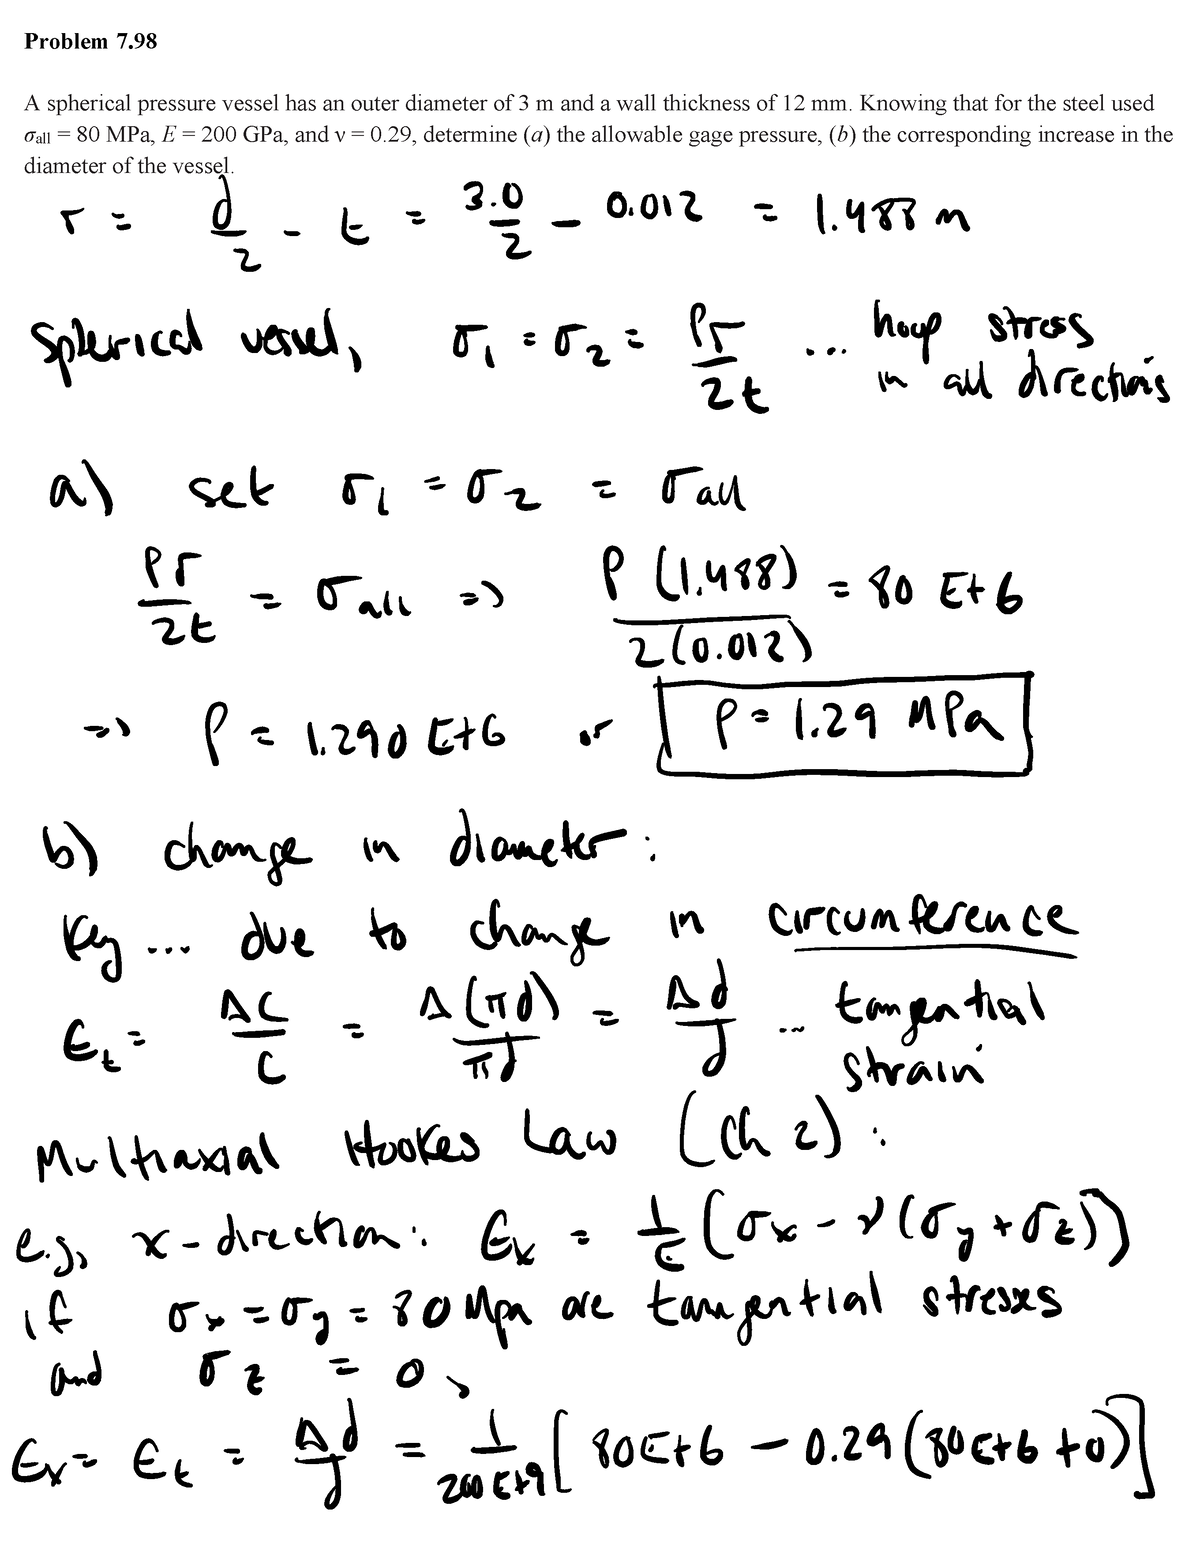 Problem 7.98
A spherical pressure vessel has an outer diameter of 3 m and a wall thickness of 12 mm. Knowing that for the steel used
σall = 80 MPa, E = 200 GPa, and ν = 0.29, determine (a) the allowable gage pressure, (b) the corresponding increase in the
diameter of the vessel.
r = d/2 - t = 3.0/2 - 0.012 = 1.488 m
Spherical vessel, σ1 = σ2 = Pr/2t ... hoop stress
in all directions
a) set σ1 = σ2 = σall
Pr/2t = σall => P (1.488)/2(0.012) = 80 E+6
=> P = 1.290 E+6 or P = 1.29 MPa
b) change in diameter :
Key ... due to change in circumference
Et = ΔC/C = Δ(πd)/πd = Δd/d ... tangential
strain
Multiaxial Hookes Law (Ch 2) :
e.g, x-direction : Ex = 1/E (σx - ν(σy + σz))
if σx = σy = 80 Mpa are tangential stresses
and σz = 0,
Ex = Et = Δd/d = 1/200 E+9 [80E+6 - 0.29 (80E+6 + 0)]